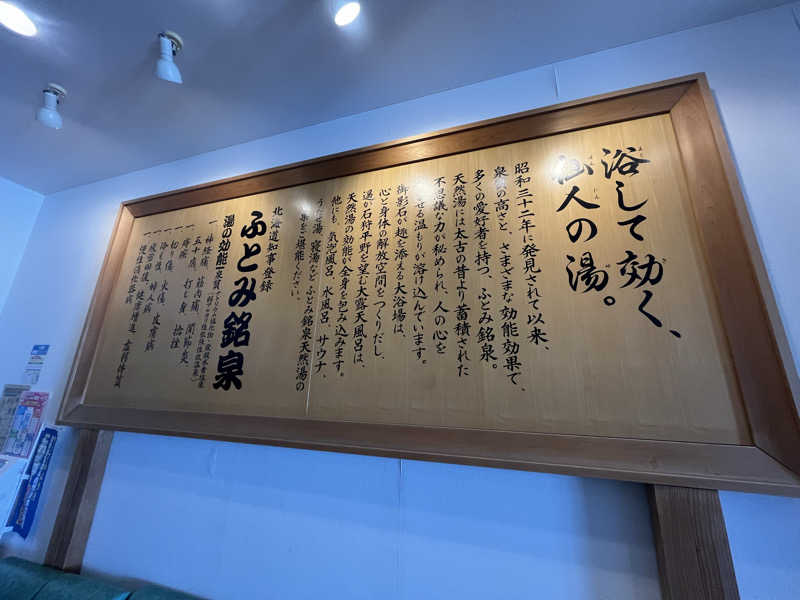 浴して効く、
仙人の湯。
昭和三十二年に発見されて以来、
泉質の高さと、さまざまな効能効果で、
多くの愛好者を持つ、ふとみ銘泉。
天然湯には太古の昔より蓄積された
不思議な力が秘められ、人の心を
せる温もりが溶け込んでいます。
御影石が趣を添える大浴場は、
心と身体の解放空間をつくりだし、
遥か石狩平野を望む大露天風呂は、
天然湯の効能が全身を包み込みます。
他にも、気泡風呂、水風呂、サウナ、
うたせ湯、寝湯など ふとみ銘泉天然湯の
をご堪能ください。
北海道知事登録
ふとみ銘泉
湯の効能
一 神経痛、筋肉痛、関節炎
五十肩、打ち身、捻挫
一 痔疾
一 切り傷、火傷、皮膚病
一 冷え性、婦人病
一 疲労回復、健康増進
一 慢性消化器病